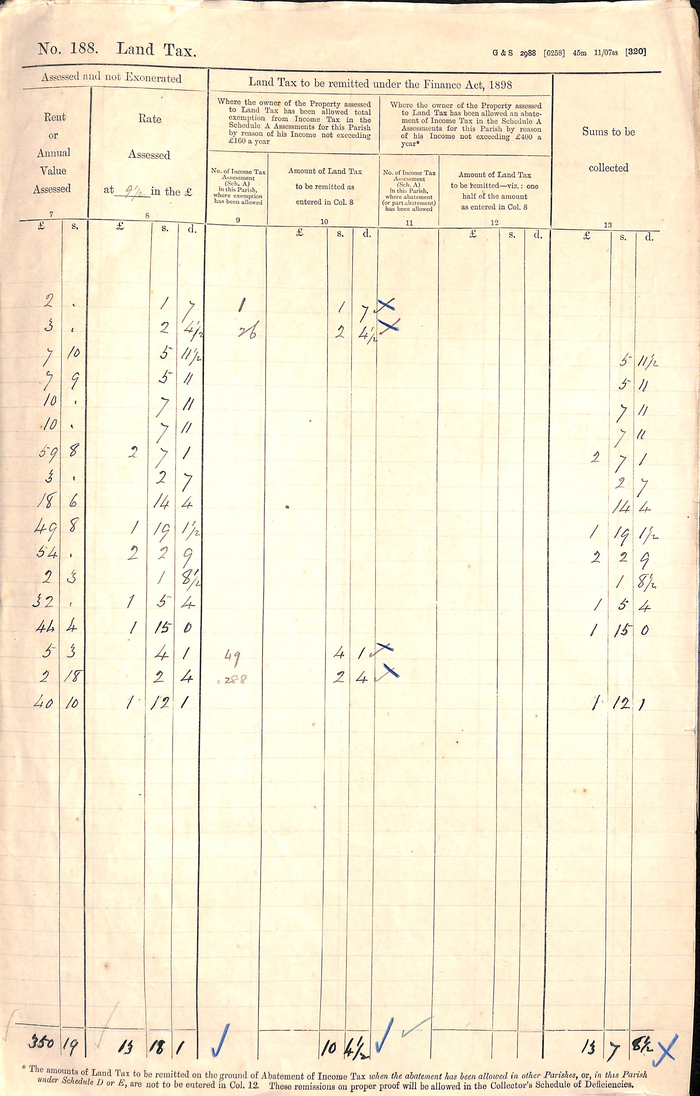 No. 188. Land Tax.
G & S 2988 [6258] 45m 11/07ss [320]
Assessed and not Exonerated
Land Tax to be remitted under the Finance Act, 1898
Rent
or
Annual
Value
Assessed
Rate
Assessed
at 9½ in the £
Where the owner of the Property assessed
to Land Tax has been allowed total
exemption from Income Tax in the
Schedule A Assessments for this Parish
by reason of his Income not exceeding
£160 a year
Where the owner of the Property assessed
to Land Tax has been allowed an abate-
ment of Income Tax in the Schedule A
Assessments for this Parish by reason
of his Income not exceeding £400 a
year*
Sums to be
collected
No. of Income Tax
Assessment
(Sch. A)
in this Parish,
where exemption
has been allowed
Amount of Land Tax
to be remitted as
entered in Col. 8
No. of Income Tax
Assessment
(Sch. A)
in this Parish,
where abatement
(or part abatement)
has been allowed
Amount of Land Tax
to be remitted—viz.: one
half of the amount
as entered in Col. 8
7 8 9 10 11 12 13
£ s. £ s. d. £ s. d. £ s. d. £ s. d.
2 . 1 7 1 1 7
3 . 2 4½ 26 2 4½
7 10 5 11½ 5 11½
7 9 5 11 5 11
10 . 7 11 7 11
10 . 7 11 7 11
59 8 2 7 1 2 7 1
3 . 2 7 2 7
18 6 14 4 14 4
49 8 1 19 1½ 1 19 1½
54 . 2 2 9 2 2 9
2 3 1 8½ 1 8½
32 . 1 5 4 1 5 4
44 4 1 15 0 1 15 0
5 3 4 1 49 4 1
2 18 2 4 288 2 4
40 10 1 12 1 1 12 1
350 19 13 18 1 10 4½ 13 7 8½
* The amounts of Land Tax to be remitted on the ground of Abatement of Income Tax when the abatement has been allowed in other Parishes, or, in this Parish
under Schedule D or E, are not to be entered in Col. 12. These remissions on proper proof will be allowed in the Collector's Schedule of Deficiencies.